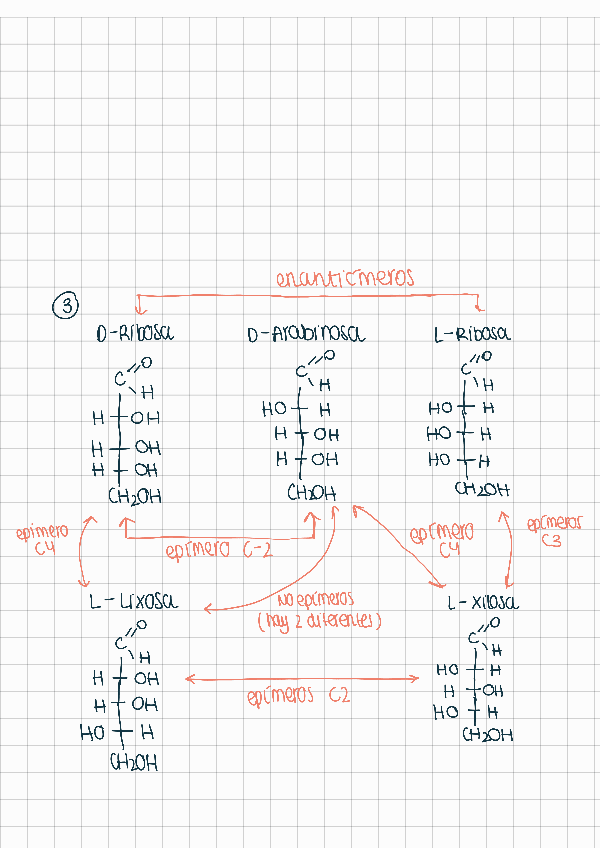 enantiómeros
3
D-Ribosa D-Arabinosa L-Ribosa
C=O C=O C=O
H H H
H OH HO H HO H
H OH H OH HO H
H OH H OH HO H
CH2OH CH2OH CH2OH
epímero C4
epímero C-2
epímero C4
epímeros C3
No epímeros
(hay 2 diferentes)
L-Lixosa L-Xilosa
C=O C=O
H H
H OH HO H
H OH H OH
HO H HO H
CH2OH CH2OH
epímeros C2